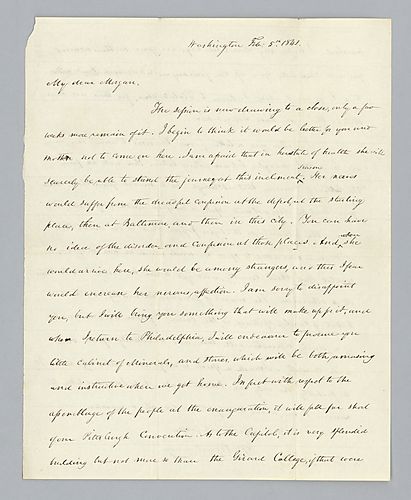 Washington Feb. 5th 1841.
My dear Morgan.
The session is now drawing to a close, only a few
weeks more remain of it. I begin to think it would be better for you and
mother not to come on here. I am afraid that in her state of health she will
season
scarcely be able to stand the journey at this inclement. Her nerves
would suffer from the dreadful confusion at the depot, at the starting
place, then at Baltimore, and then in this city. You can have
when
no idea of the disorder and confusion at those places. And, she
would arrive here, she would be among strangers, and this I fear
would increase her nervous affection. I am sorry to disappoint
you, but I will bring you something that will make up for it, and
when I return to Philadelphia, I will endeavor to procure you
little cabinet of Minerals, and stones, which will be both amusing
and instructive when we get home. In fact with respect to the
assemblage of the people at the inauguration, it will fall far short
of your Pittsburgh Convocation. As to the Capitol, it is very splendid
building but not more so than the Girard College, if that were